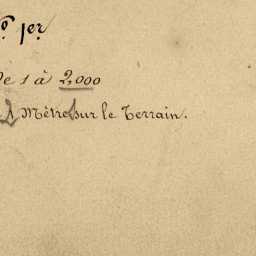 º 1er
de 1 à 2,000
1 Mètre sur le Terrain.